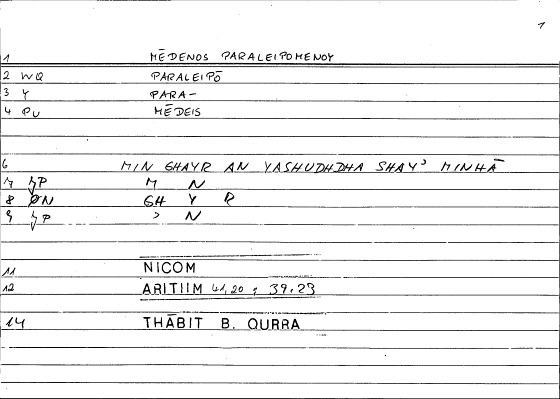 1
1 MĒDENOS PARALEIPOMENOY
2 WQ PARALEIPŌ
3 Y PARA-
4 PU MĒDEIS
6 MIN GHAYR AN YASHUDHDHA SHAY' MINHĀ
7 P M N
8 ØN GH Y R
9 P ' N
11 NICOM
12 ARITIIM 41,20 ; 39.23
14 THĀBIT B. QURRA